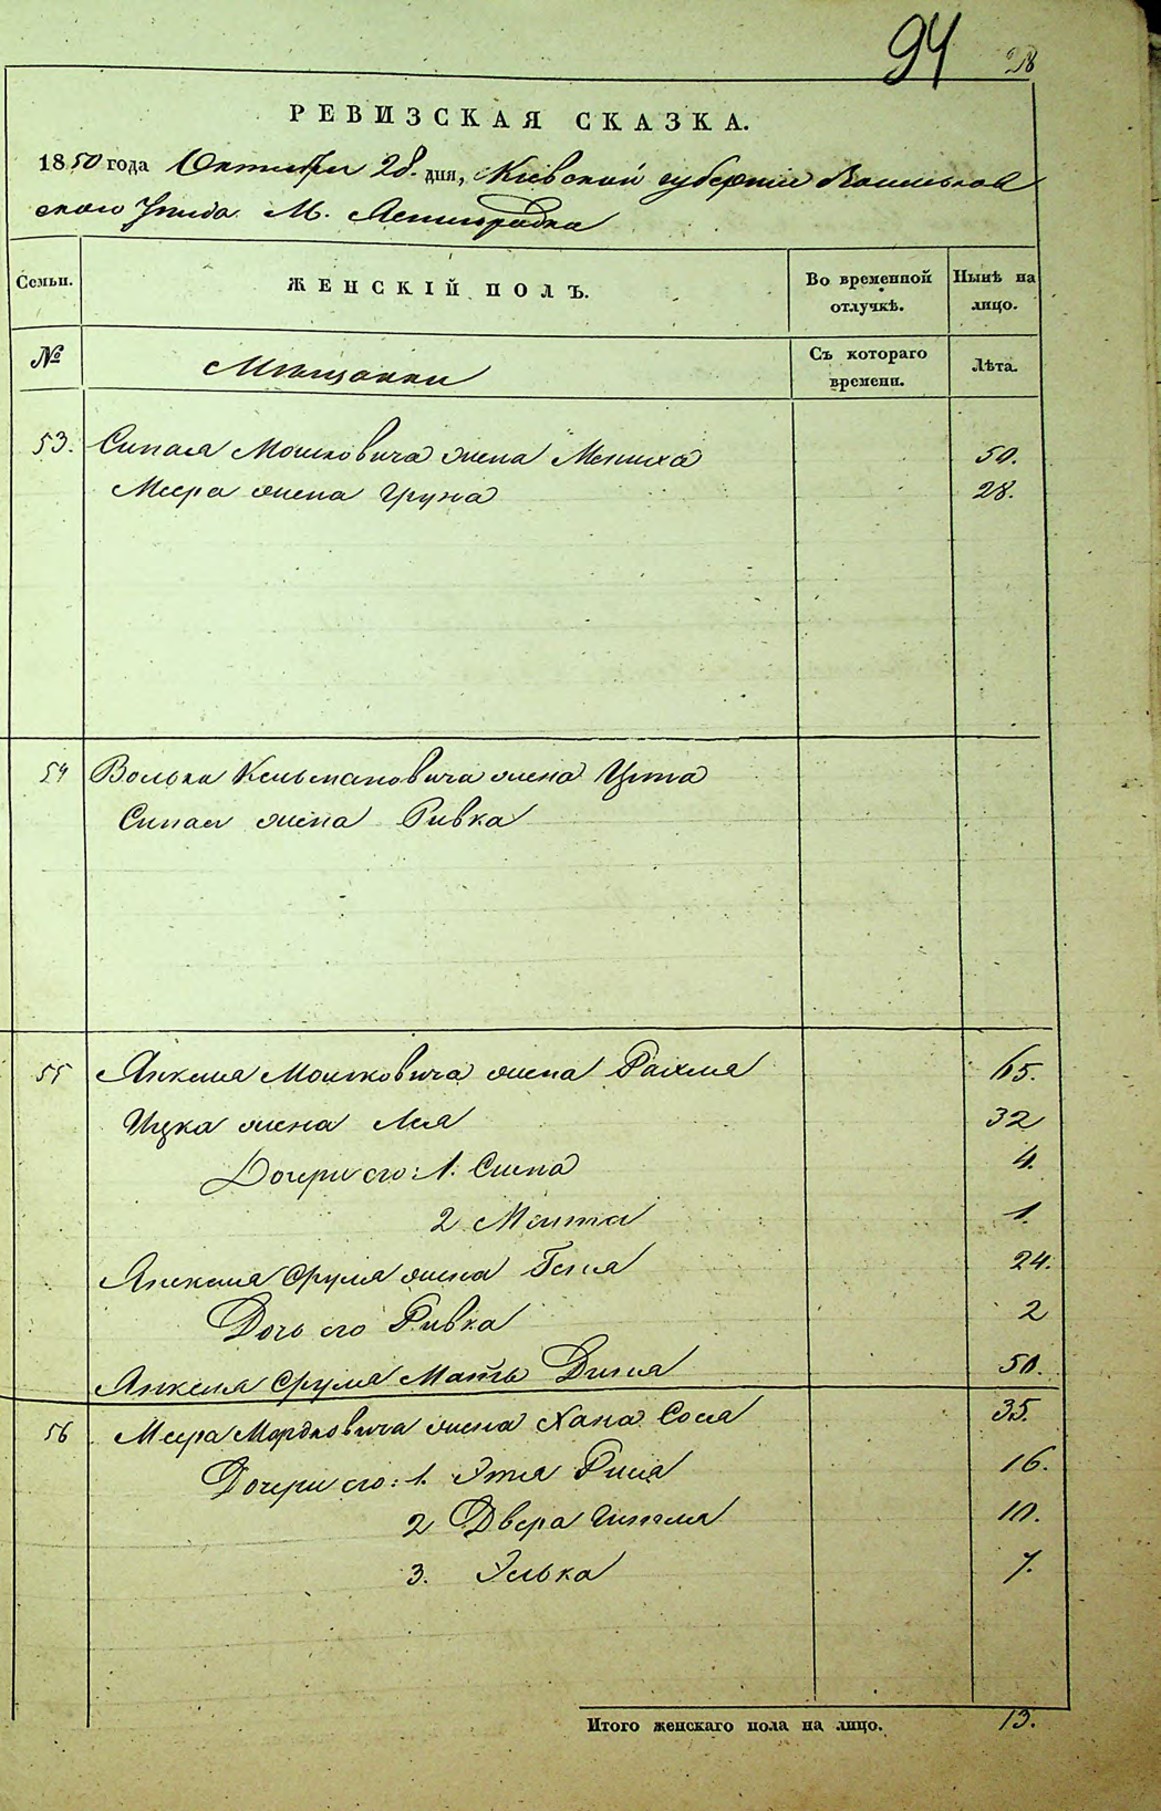 94 28
РЕВИЗСКАЯ СКАЗКА.
1850 года Октября 28. дня, Киевской губернии Васильков
скаго Уезда М. Ясногородка
Семьи. ЖЕНСКІЙ ПОЛЪ. Во временной отлучкѣ. Нынѣ на лицо.
№ Мещанки Съ котораго времени. Лѣта.
53. Сипая Мошковича жена Мениха 50.
Меера жена Груна 28.
54 Волька Кельмановича жена Цита
Сипая жена Ривка
55 Янкеля Мошковича жена Рахля 65.
Ицка жена Лея 32
Дочери его: 1. Сипа 4.
2 Мента 1.
Янкеля Сруля жена Геня 24.
Дочь его Ривка 2
Янкеля Сруля Мать Диня 50.
56 Меера Мордковича жена Хана Сося 35.
Дочери его: 1. Этля Рися 16.
2 Двера 10.
3. Элька 7.
Итого женскаго пола на лицо. 13.